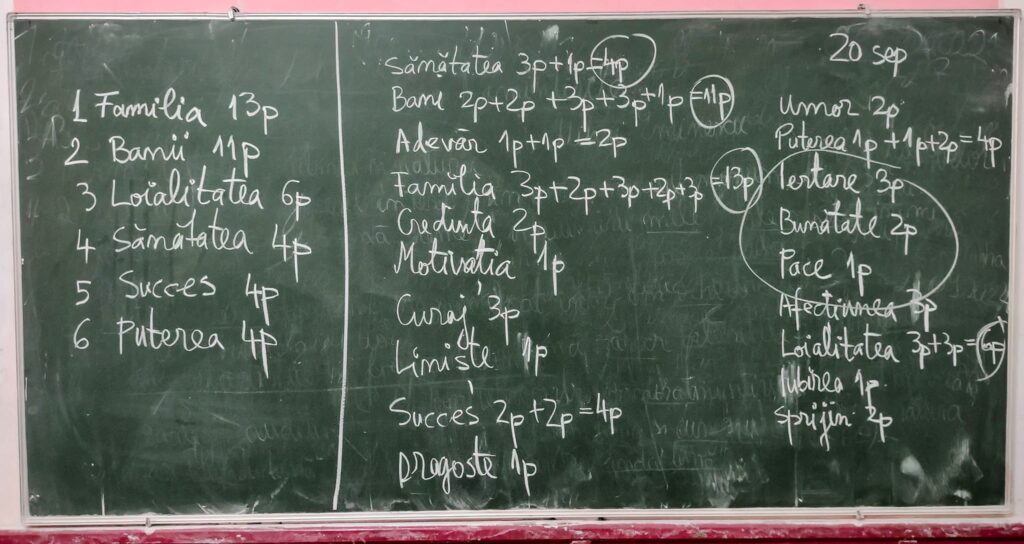 1 Familia 13p
2 Banii 11p
3 Loialitatea 6p
4 Sănătatea 4p
5 Succes 4p
6 Puterea 4p
Sănătatea 3p+1p=4p
Bani 2p+2p+3p+3p+1p=11p
Adevăr 1p+1p=2p
Familia 3p+2p+3p+2p+3p=13p
Credința 2p
Motivația 1p
Curaj 3p
Liniște 1p
Succes 2p+2p=4p
Dragoste 1p
20 sep
Umor 2p
Puterea 1p+1p+2p=4p
Iertare 3p
Bunătate 2p
Pace 1p
Afecțiunea 3p
Loialitatea 3p+3p=6p
Iubirea 1p
Sprijin 2p